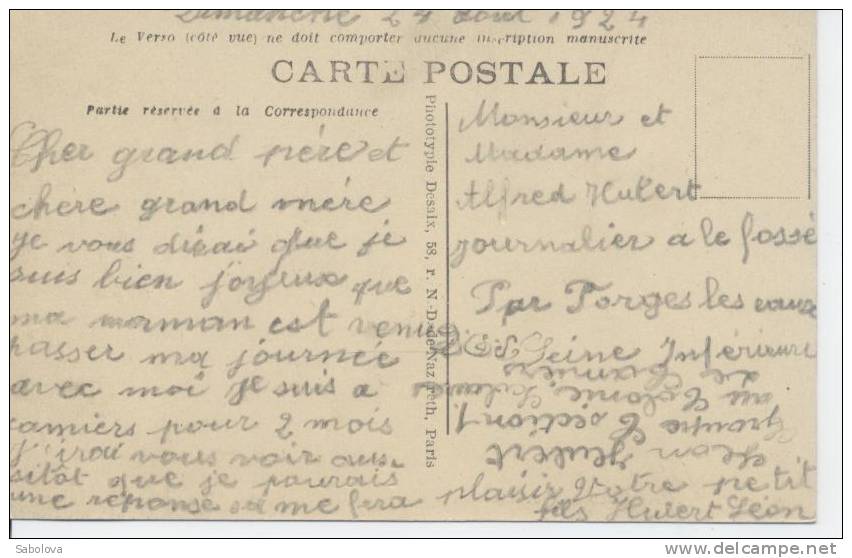 Dimanche 24 Aout 1924
Le Verso (côté vue) ne doit comporter aucune inscription manuscrite
CARTE POSTALE
Partie réservée à la Correspondance
Cher grand père et
chère grand mère
je vous dirai que je
suis bien joyeux que
ma maman est venue
passer ma journée
avec moi je suis a
camiers pour 2 mois
j'irai vous voir aus
sitôt que je pourais
une réponse sa me fera plaisir Votre petit
fils Hubert Léon
Phototypie Desaix, 58, r. N.-D.-de-Nazareth, Paris
Monsieur et
Madame
Alfred Hubert
journalier a le fossé
Par Forges les eaux
Seine Inférieure
Léon Hubert
Groupe C section 1
au Colonie Scolaire
de Camiers
Sabolova
http://www.delcampe.net